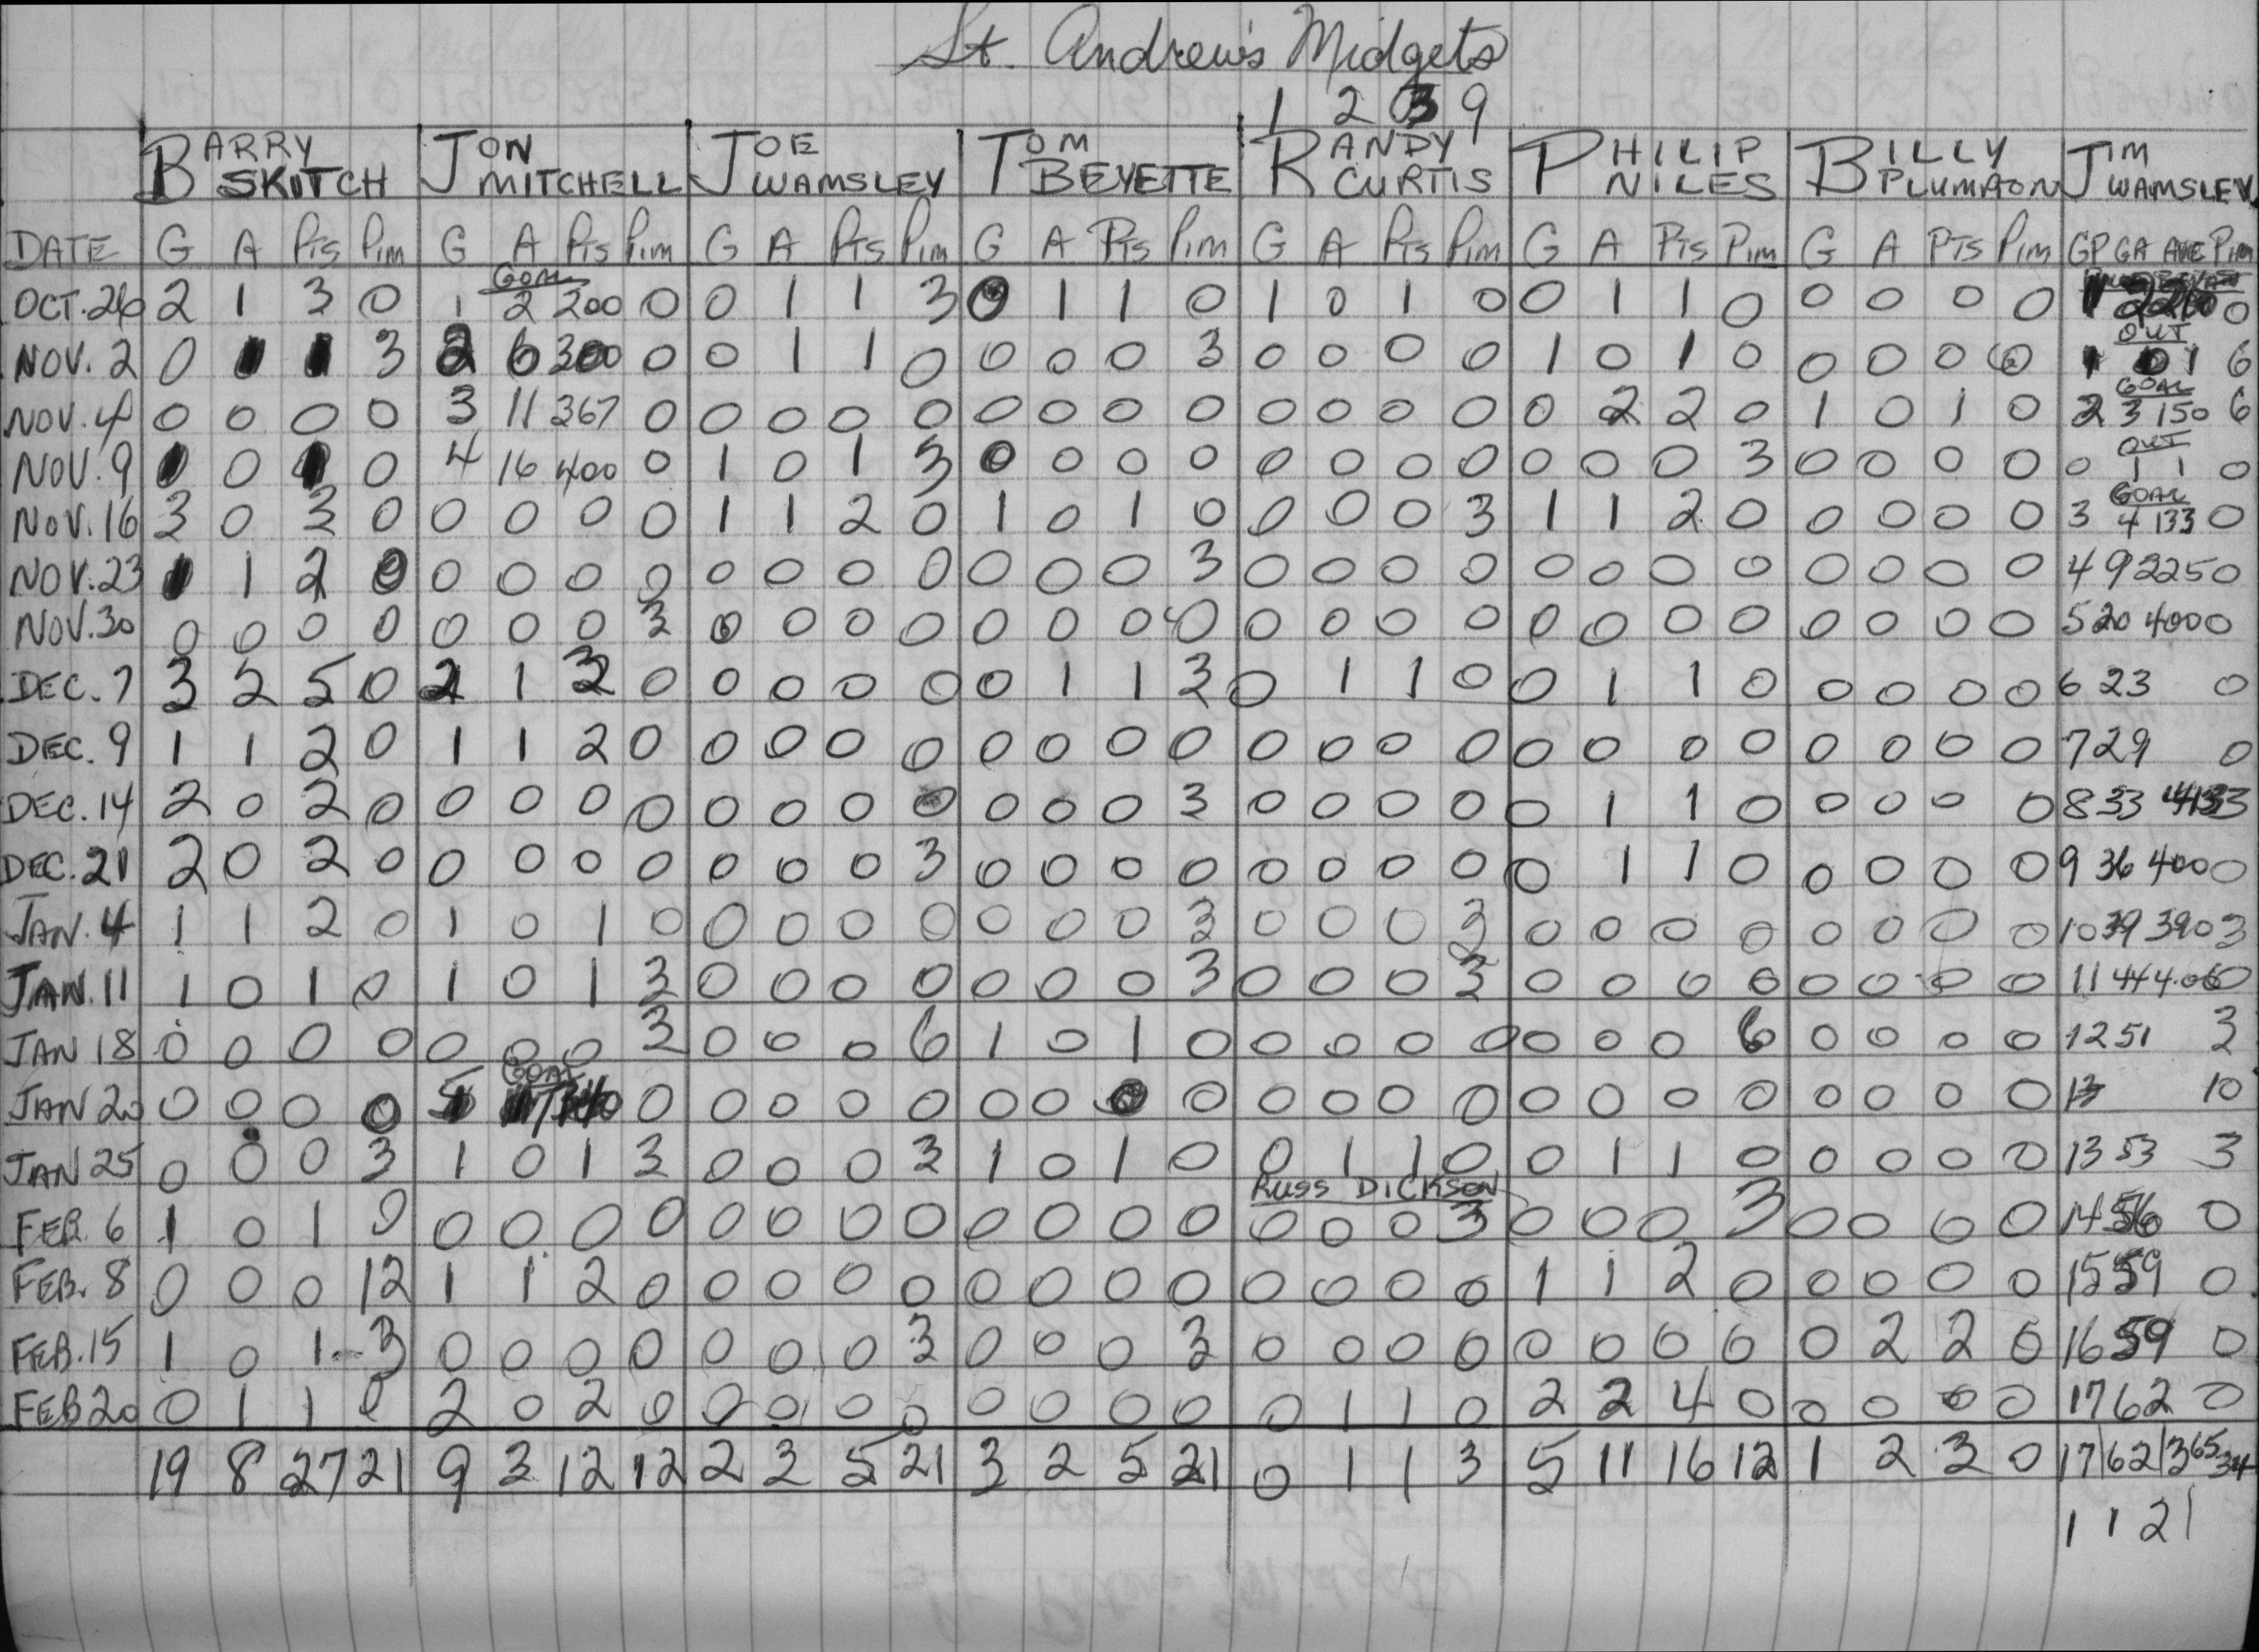 St. Andrew's Midgets
1 2 3 9
BARRY SKITCH JON MITCHELL JOE WAMSLEY TOM BEYETTE RANDY CURTIS PHILIP NILES BILLY PLUMPTON JIM WAMSLEY
DATE G A Pts Pim G A Pts Pim G A Pts Pim G A Pts Pim G A Pts Pim G A Pts Pim G A Pts Pim GP GA AVE Pim
GOAL
OCT. 26 2 1 3 0 1 2 200 0 0 1 1 3 0 1 1 0 1 0 1 0 0 1 1 0 0 0 0 0 0
OUT
NOV. 2 0 1 1 3 2 6 300 0 0 1 1 0 0 0 0 3 0 0 0 0 1 0 1 0 0 0 0 6 1 0 1 6
GOAL
NOV. 4 0 0 0 0 3 11 367 0 0 0 0 0 0 0 0 0 0 0 0 0 0 2 2 0 1 0 1 0 2 3 150 6
OUT
NOV. 9 0 0 4 16 400 0 1 0 1 3 0 0 0 0 0 0 0 0 0 0 0 3 0 0 0 0 0 1 1 0
GOAL
NOV. 16 3 0 3 0 0 0 0 0 1 1 2 0 1 0 1 0 0 0 0 3 1 1 2 0 0 0 0 0 3 4 133 0
NOV. 23 1 1 2 0 0 0 0 0 0 0 0 0 0 0 0 3 0 0 0 0 0 0 0 0 0 0 0 0 4 9 225 0
NOV. 30 0 0 0 0 0 0 0 3 0 0 0 0 0 0 0 0 0 0 0 0 0 0 0 0 0 0 0 0 5 20 400 0
DEC. 7 3 2 5 0 2 1 3 0 0 0 0 0 0 1 1 3 0 1 1 0 0 1 1 0 0 0 0 0 6 23 0
DEC. 9 1 1 2 0 1 1 2 0 0 0 0 0 0 0 0 0 0 0 0 0 0 0 0 0 0 0 0 0 7 29 0
DEC. 14 2 0 2 0 0 0 0 0 0 0 0 0 0 0 0 3 0 0 0 0 0 1 1 0 0 0 0 0 8 33 413 3
DEC. 21 2 0 2 0 0 0 0 0 0 0 0 3 0 0 0 0 0 0 0 0 0 1 1 0 0 0 0 0 9 36 400 0
JAN. 4 1 1 2 0 1 0 1 0 0 0 0 0 0 0 0 3 0 0 0 3 0 0 0 0 0 0 0 0 10 39 390 3
JAN. 11 1 0 1 0 1 0 1 3 0 0 0 0 0 0 0 3 0 0 0 3 0 0 0 0 0 0 0 0 11 44 4.06 0
JAN 18 0 0 0 0 0 0 0 3 0 0 0 6 1 0 1 0 0 0 0 0 0 0 0 6 0 0 0 0 12 51 3
GOAL
JAN 20 0 0 0 0 5 17 340 0 0 0 0 0 0 0 0 0 0 0 0 0 0 0 0 0 0 0 0 0 13 10
JAN 25 0 0 0 3 1 0 1 3 0 0 0 3 1 0 1 0 0 1 1 0 0 1 1 0 0 0 0 0 13 53 3
RUSS DICKSON
FEB. 6 1 0 1 0 0 0 0 0 0 0 0 0 0 0 0 0 0 0 0 3 0 0 0 3 0 0 0 0 14 56 0
FEB. 8 0 0 0 12 1 1 2 0 0 0 0 0 0 0 0 0 0 0 0 0 1 1 2 0 0 0 0 0 15 59 0
FEB. 15 1 0 1 3 0 0 0 0 0 0 0 3 0 0 0 3 0 0 0 0 0 0 0 0 0 2 2 0 16 59 0
FEB 20 0 1 1 0 2 0 2 0 0 0 0 0 0 0 0 0 0 1 1 0 2 2 4 0 0 0 0 0 17 62 0
19 8 27 21 9 3 12 12 2 3 5 21 3 2 5 21 0 1 1 3 5 11 16 12 1 2 3 0 17 62 365 34
1 1 2